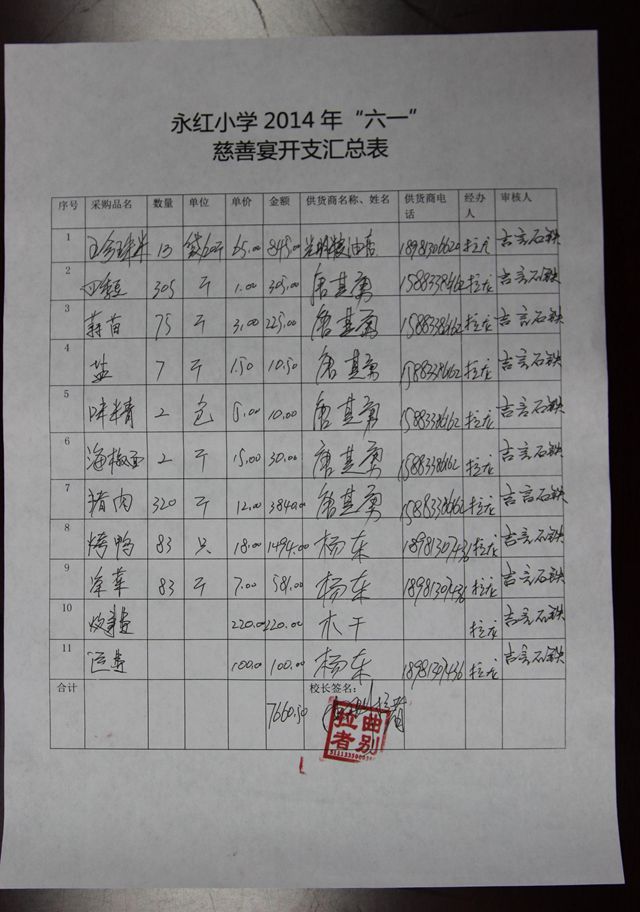 永红小学2014年“六一”
慈善宴开支汇总表
序号 采购品名 数量 单位 单价 金额 供货商名称、姓名 供货商电话 经办人 审核人
1 13 65.00 845.00 拉龙 吉言石铁
2 四季豆 305 斤 1.00 305.00 唐其勇 15883384162 拉龙 吉言石铁
3 蒜苗 75 斤 3.00 225.00 唐其勇 拉龙 吉言石铁
4 盐 7 斤 1.50 10.50 唐其勇 拉龙 吉言石铁
5 味精 2 包 5.00 10.00 唐其勇 拉龙 吉言石铁
6 海椒面 2 斤 15.00 30.00 唐其勇 拉龙 吉言石铁
7 猪肉 320 斤 12.00 3840.00 唐其勇 拉龙 吉言石铁
8 烤鸭 83 只 18.00 1494.00 杨东 18981307436 拉龙 吉言石铁
9 凉菜 83 斤 7.00 581.00 杨东 18981307436 拉龙 吉言石铁
10 220.00 220.00 木干 拉龙 吉言石铁
11 运费 100.0 100.00 杨东 18981307436 拉龙 吉言石铁
合计 7660.50 校长签名：
曲别
拉者